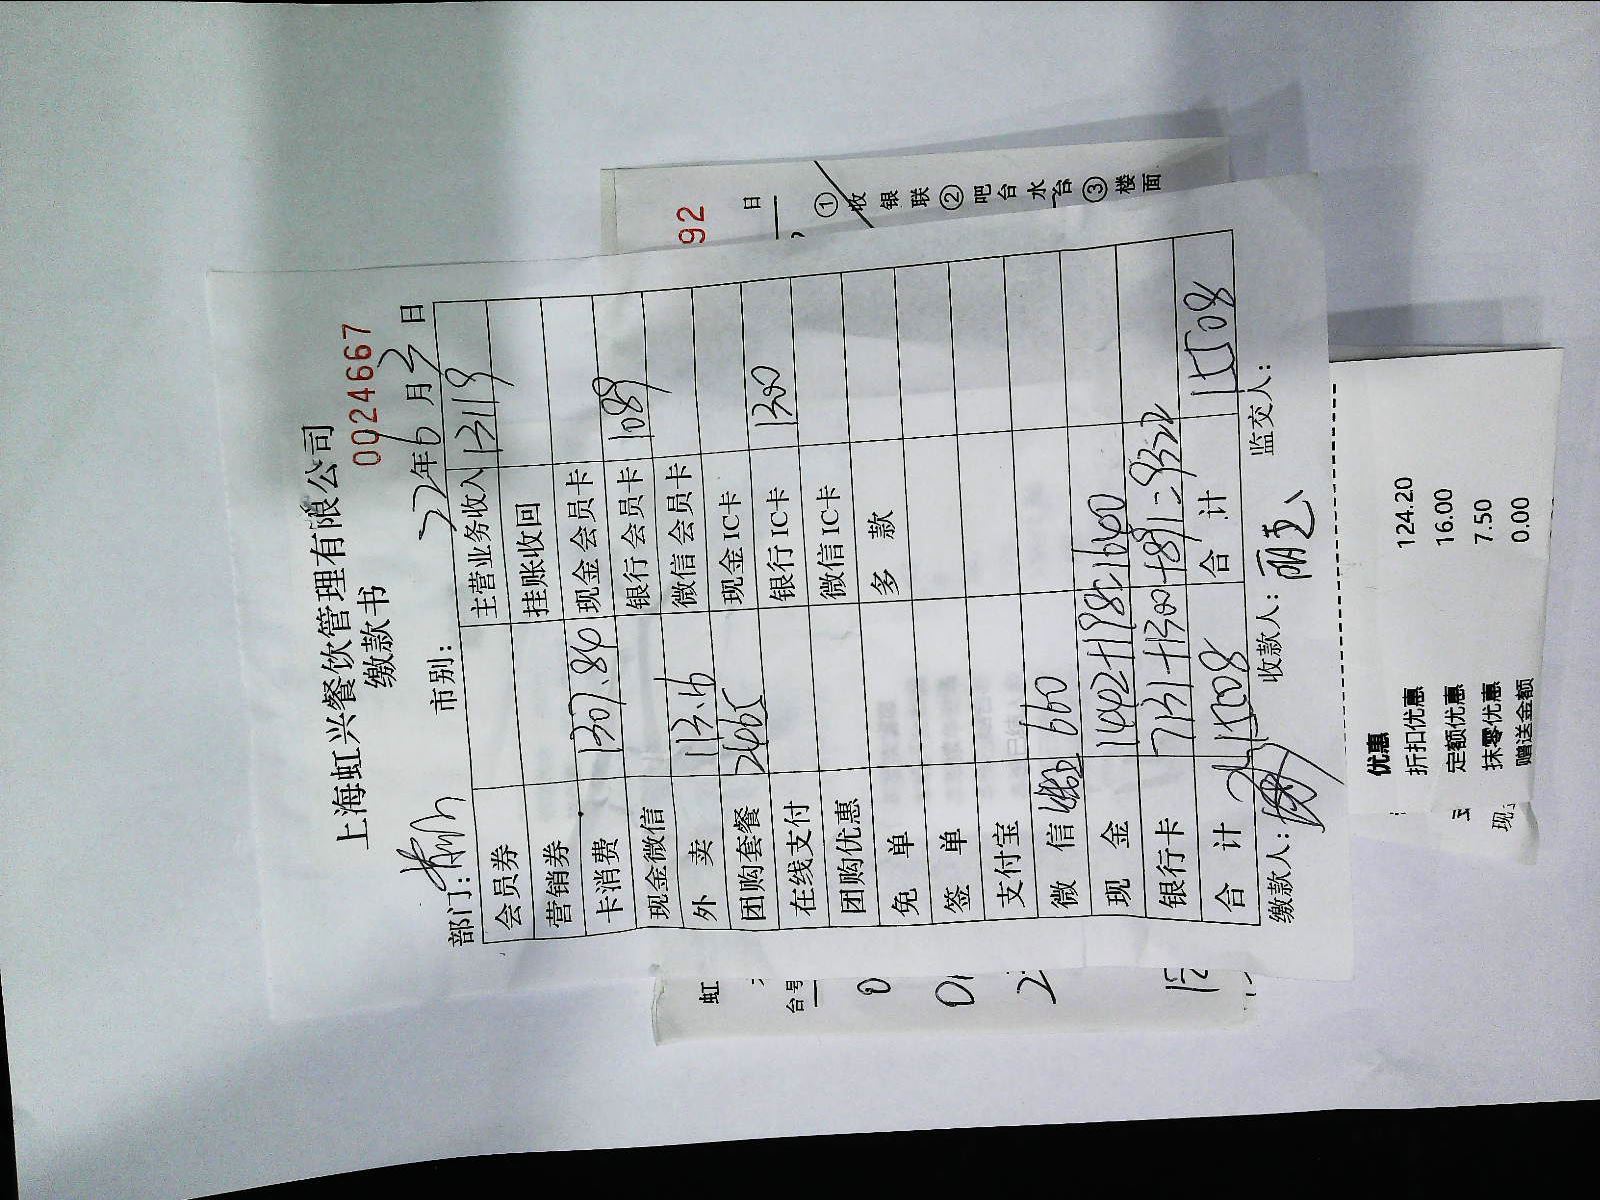 上海虹兴餐饮管理有限公司
缴款书
0024667
部门: 市别: 22年6月2日
会员券 主营业务收入 13119
营销券 挂账收回
卡消费 1307.84 现金会员卡
现金微信 银行会员卡 1089
外卖 113.6 微信会员卡
团购套餐 2465 现金IC卡
在线支付 银行IC卡 1300
团购优惠 微信IC卡
免单 多款
签单
支付宝
微信 660
现金 1442+198=1640
银行卡 7131+1300+891=9322
合计 15508 合计 15508
缴款人: 收款人: 监交人:
92
日
①收银联②吧台水台③楼面
虹
台号
优惠
折扣优惠 124.20
定额优惠 16.00
抹零优惠 7.50
赠送金额 0.00